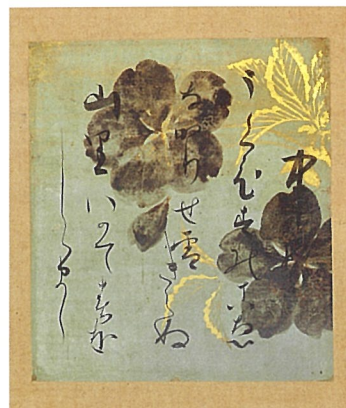 うくひすのこゑ
なかりせは雪きえぬ
山里いかて春を
しらまし